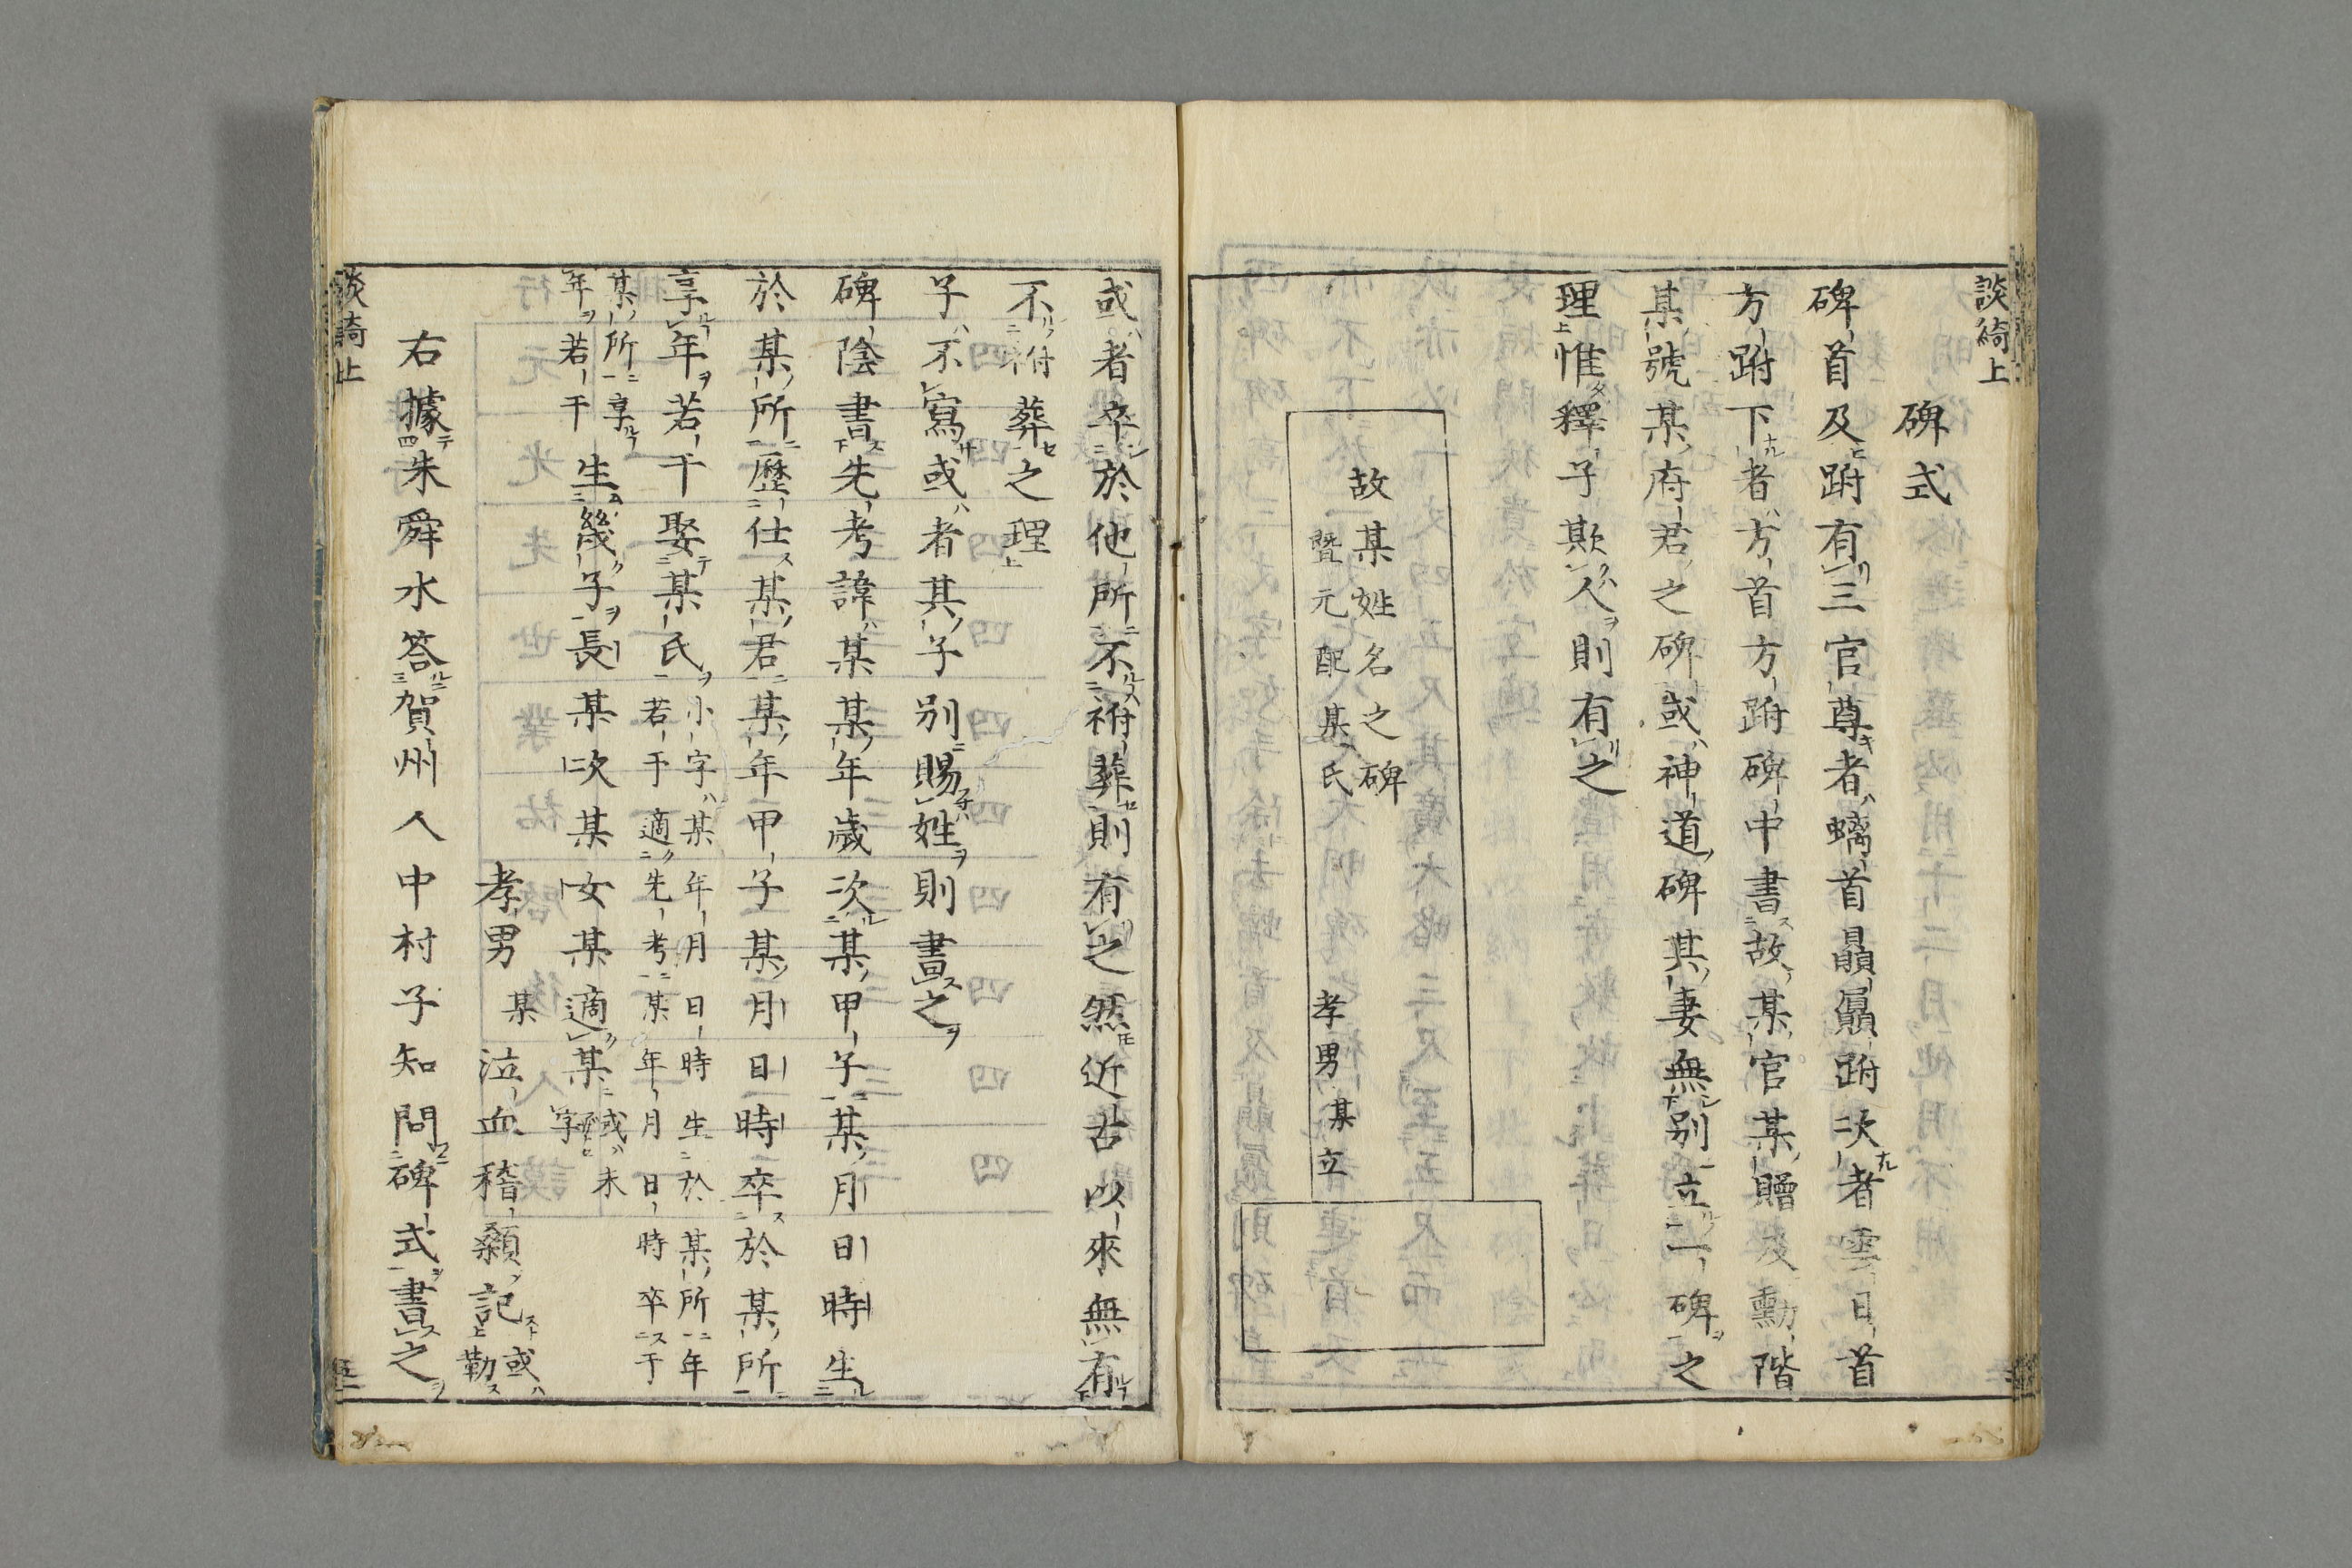 談綺上
碑式
碑首及跗有三官尊者螭首贔屭跗次者雲日首
方跗下者方首方跗碑中書故某官某贈及勳階
某號某府君之碑或神道碑其妻無別立一碑之
理惟釋子欺人則有之
故某姓名之碑
暨元配某氏
孝男某立
或者卒於他所不祔葬則有之然近古以來無有
不祔葬之理
子不寫或者其子別賜姓則書之
碑陰書先考諱某某年歲次某甲子某月日時生
於某所歷仕某君某年甲子某月日時卒於某所
享年若干娶某氏小字某年月日時生於某所年
若干適先考某年月日時卒于
某所享
年若干生幾子長某次某女某適某或未
字
孝男某泣血稽顙記或
勒
右據朱舜水答賀州人中村子知問碑式書之
談綺上